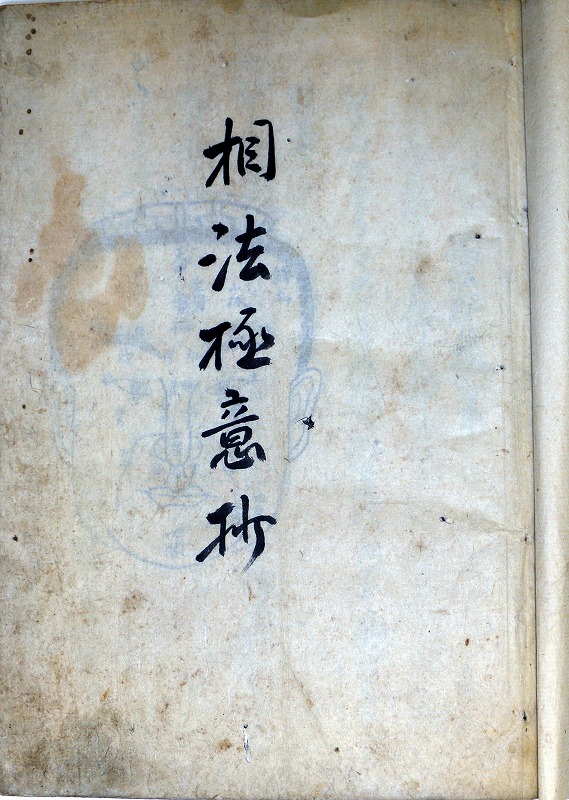 相法極意抄